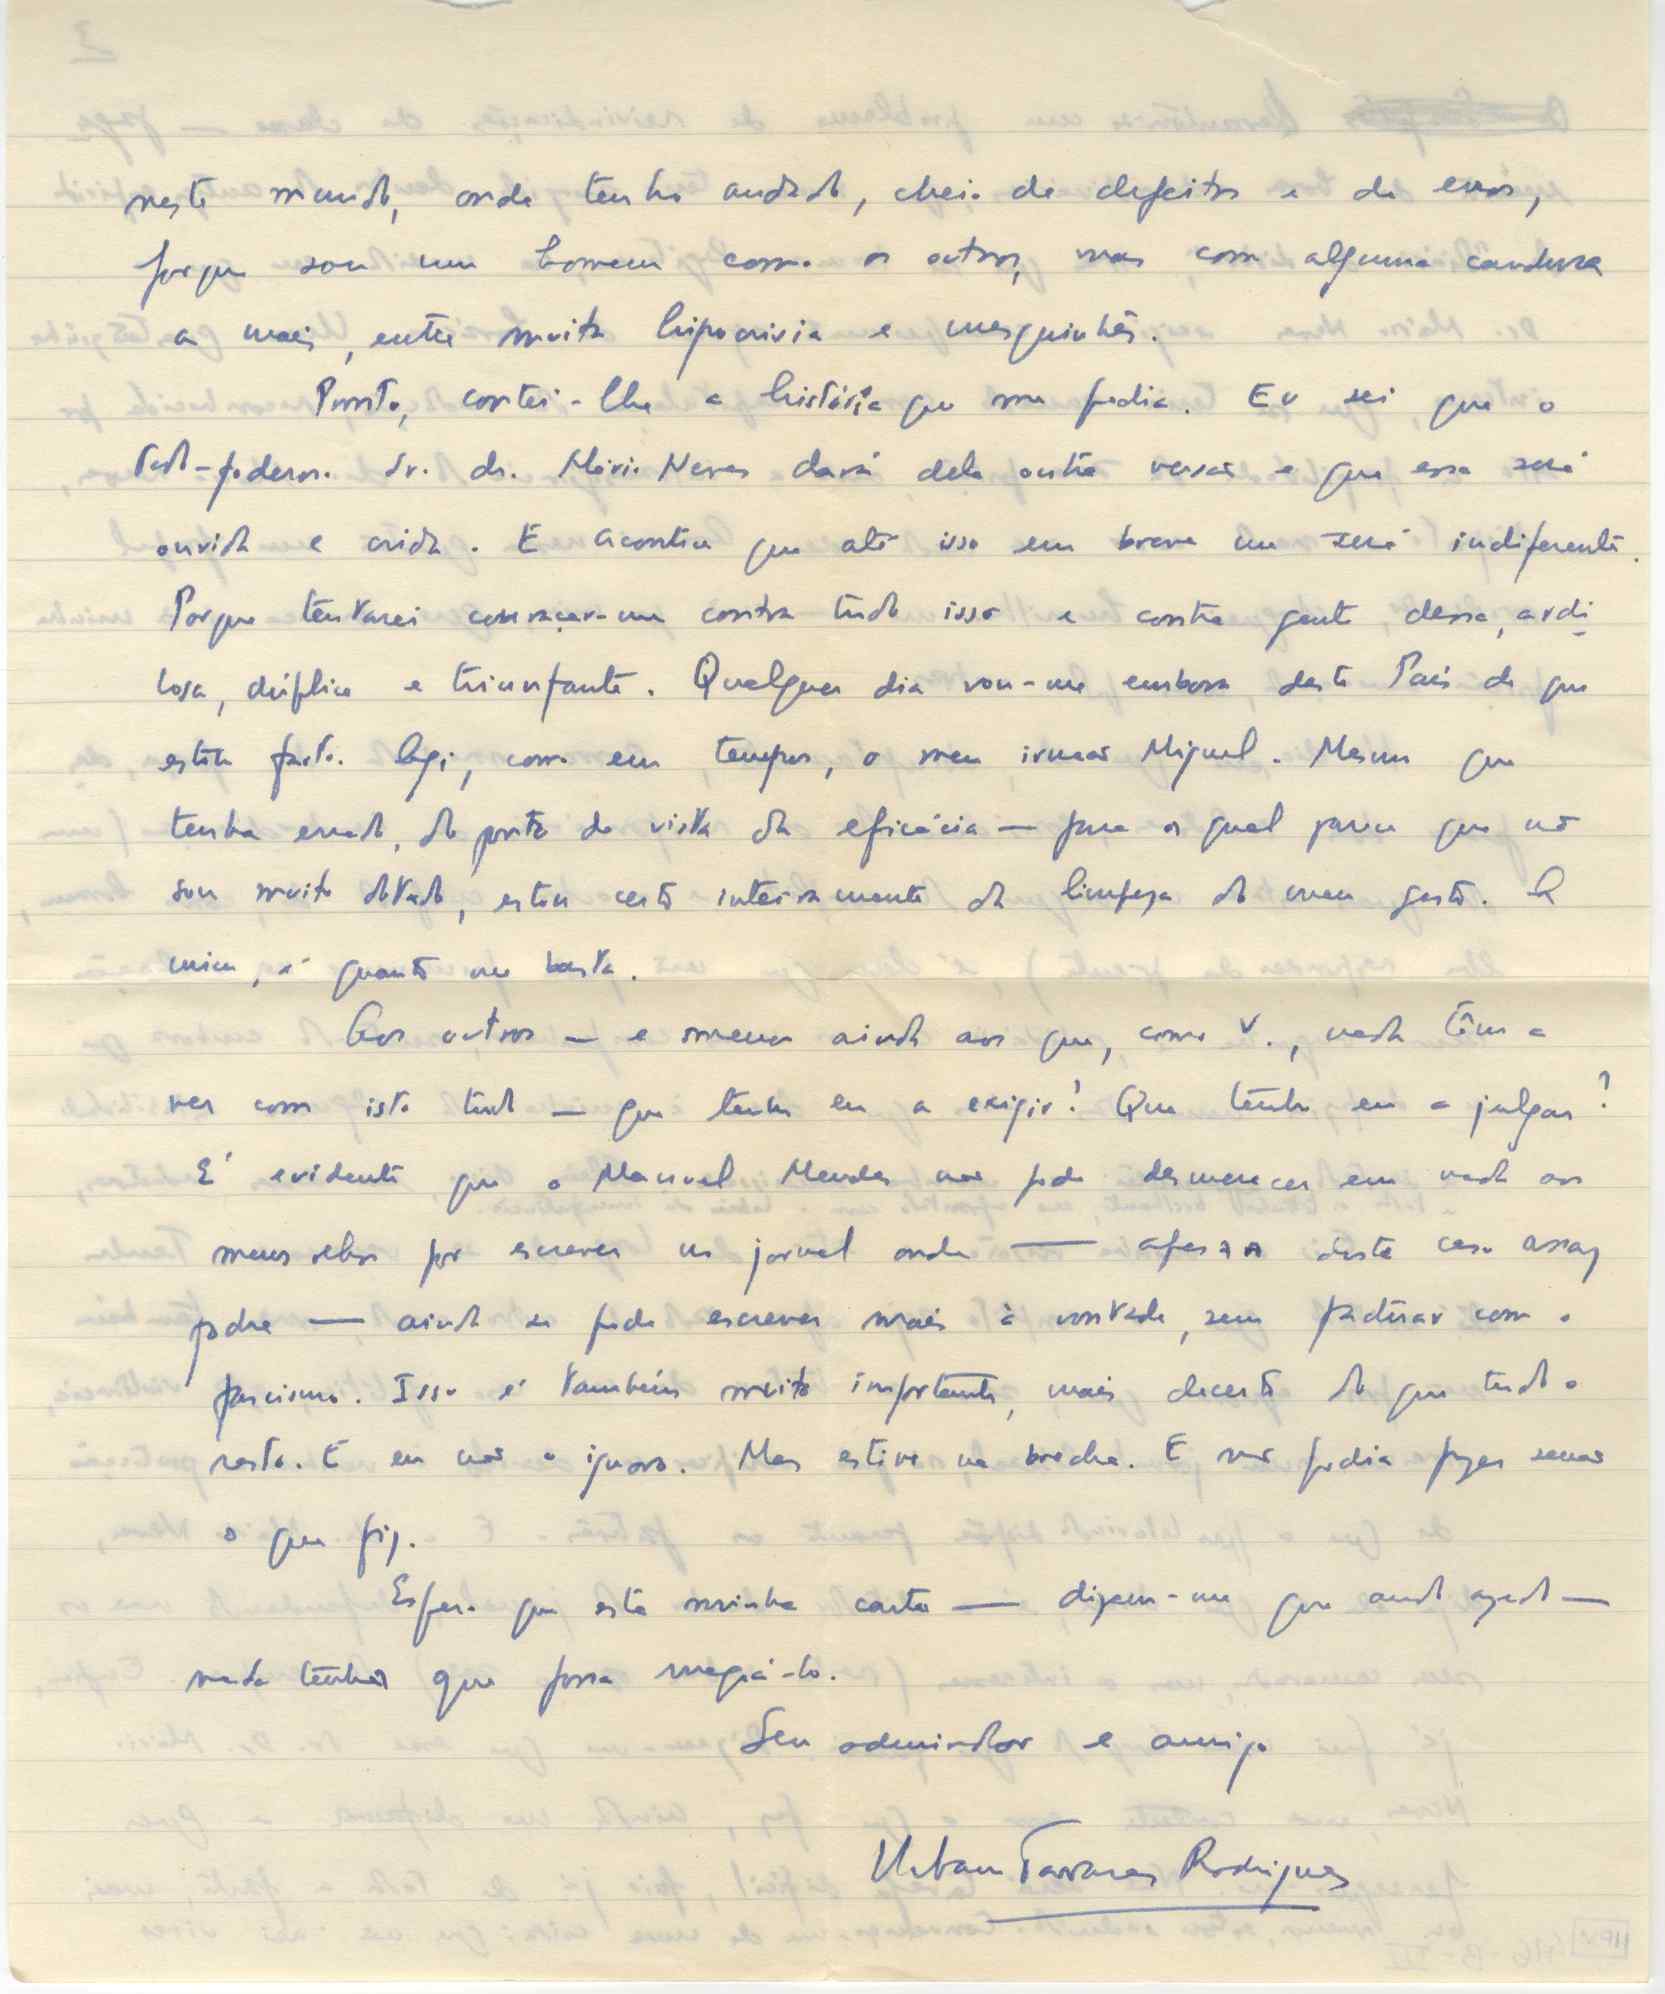 neste mundo, onde tenho andado, cheio de defeitos e de erros,
porque sou um homem como os outros, mas com alguma candura
a mais, entre muita hipocrisia e mesquinhês.
Pronto, contei-lhe a história que me pedia. Eu sei que o
Todo-poderoso Sr. dr. Mário Neves dará dela outra versão e que essa será
ouvida e crida. E acontece que até isso em breve me será indiferente.
Porque tentarei couraçar-me contra tudo isso e contra gente dessa, ardi
losa, dúplice e triunfante. Qualquer dia vou-me embora deste País de que
estou farto. Agi, como em tempos, o meu irmão Miguel. Mesmo que
tenha errado, do ponto de vista da eficácia — para a qual parece que não
sou muito dotado, estou certo inteiramente da limpeza do meu gesto. A
mim, é quanto me basta.
Aos outros — e menos ainda aos que, como V., nada têm a
ver com isto tudo — que tenho eu a exigir? Que tenho eu a julgar?
É evidente que o Manuel Mendes não pode desmerecer em nada aos
meus olhos por escrever no jornal onde — apesar deste caso assaz
podre — ainda se pode escrever mais à vontade, sem pactuar com o
fascismo. Isso é também muito importante, mais decerto do que tudo o
resto. E eu não o ignoro. Mas estive na brecha. E não podia fazer senão
o que fiz.
Espero que esta minha carta — dizem-me que ando azedo —
nada tenha que possa magoá-lo.
Seu admirador e amigo
Urbano Tavares Rodrigues